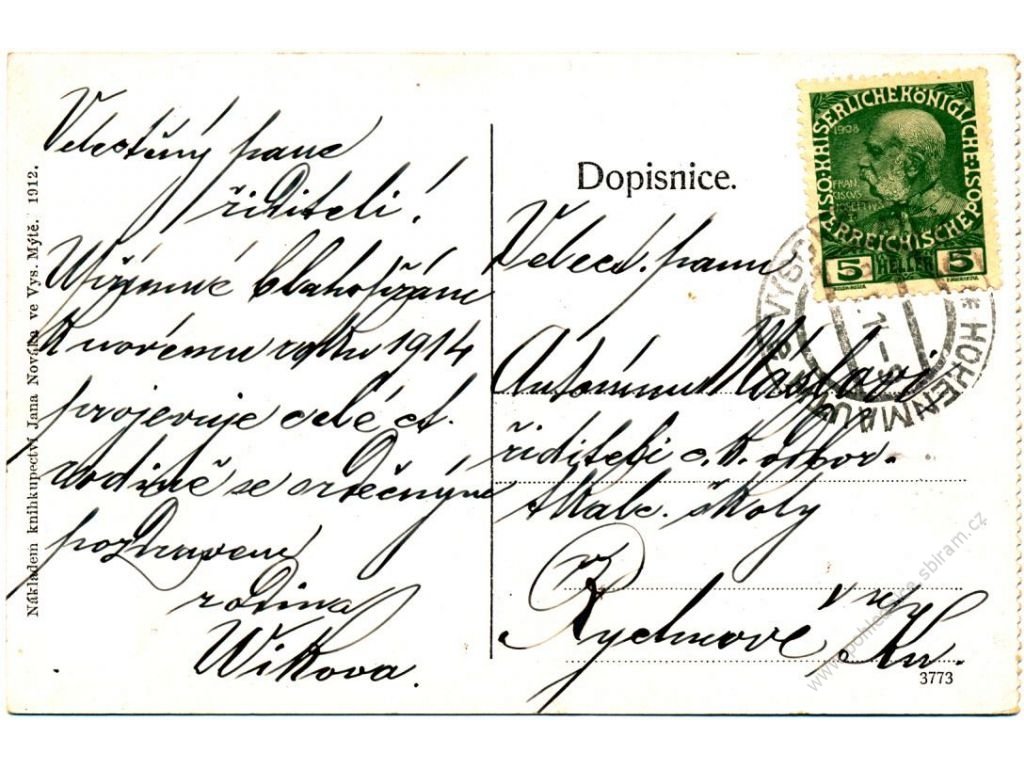 Velectěný pane
řiditeli!
Upřímné blahopřání
k novému roku 1914
projevuje celé ct.
rodině se srdečným
pozdravem
rodina
Wikova.
Nákladem knihkupectví Jana Nováka ve Vys. Mýtě. 1912.
Dopisnice.
Velect. panu
Antonínu
řiditeli c. k. odbor.
škole. školy
v
Rychnově Kn.
3773
KAISERLICHE KÖNIGLICHE ÖSTERREICHISCHE POST
1908
FRAN
CISCVS
IOSEFVS
I
5 HELLER 5
HOHENMAUTH
www.pohlednice.sbiram.cz